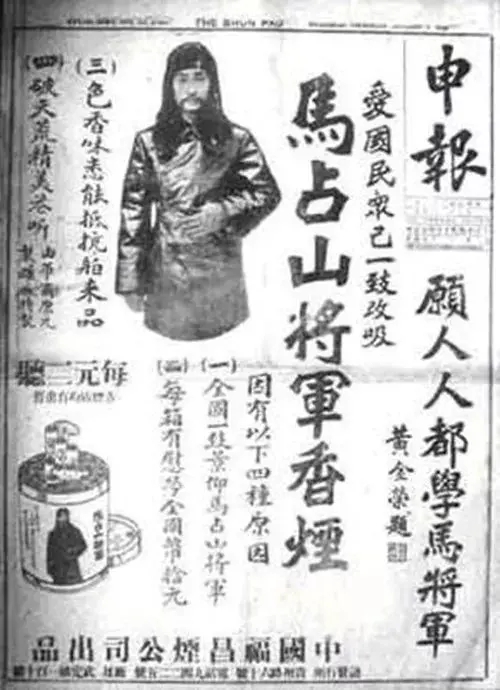 THE SHUN PAO
申報
願人人都學馬將軍
黃金榮題
愛國民眾已一致改吸
馬占山將軍香煙
因有以下四種原因
(一)全國一致景仰馬占山將軍
(二)每箱有慰勞金國幣拾元
(三)色香味悉能抵抗舶來品
(四)破天荒精美听
每元三聽
中國福昌煙公司出品